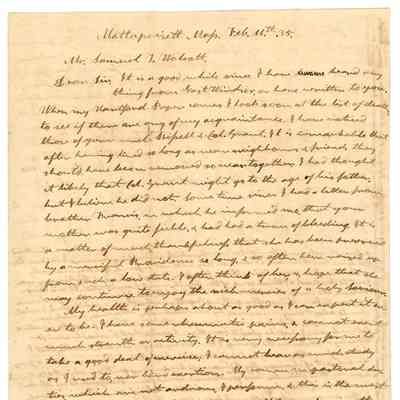 Mattapoisett Mass. Feb. 11th. 35.
Mr. Samuel T. Wolcott,
Dear Sir, It is a good while since I have heard any
thing from East Windsor, or have written to you.
When my Hartford paper comes I look soon at the list of deaths
to see if there are any of my acquaintance. I have noticed
those of your uncle & Col. Grant. It is remarkable that
after having lived so long as near neighbours & friends they
should have been removed so near together. I had thought
it likely that Col. Grant might go to the age of his father,
but I believe he did not. Some time since I had a letter from
brother in which he informed me that your
mother was quite feeble, & had had a turn of bleeding. It is
a matter of much thankfulness that she has been preserved
by a merciful Providence so long, & so often been raised up
from such a low state. I often think of her, & hope that she
may continue to enjoy the rich mercies of a holy Saviour.
My health is perhaps about as good as I can expect it ev
er to be. I have some rheumatic pains, & cannot exert
much strength or activity. It is very necessary for me to
take a good deal of exercise, I cannot bear as much study
as I used to, nor hard exertion. My common pastoral du
ties which are not arduous, I perform, & this is the most